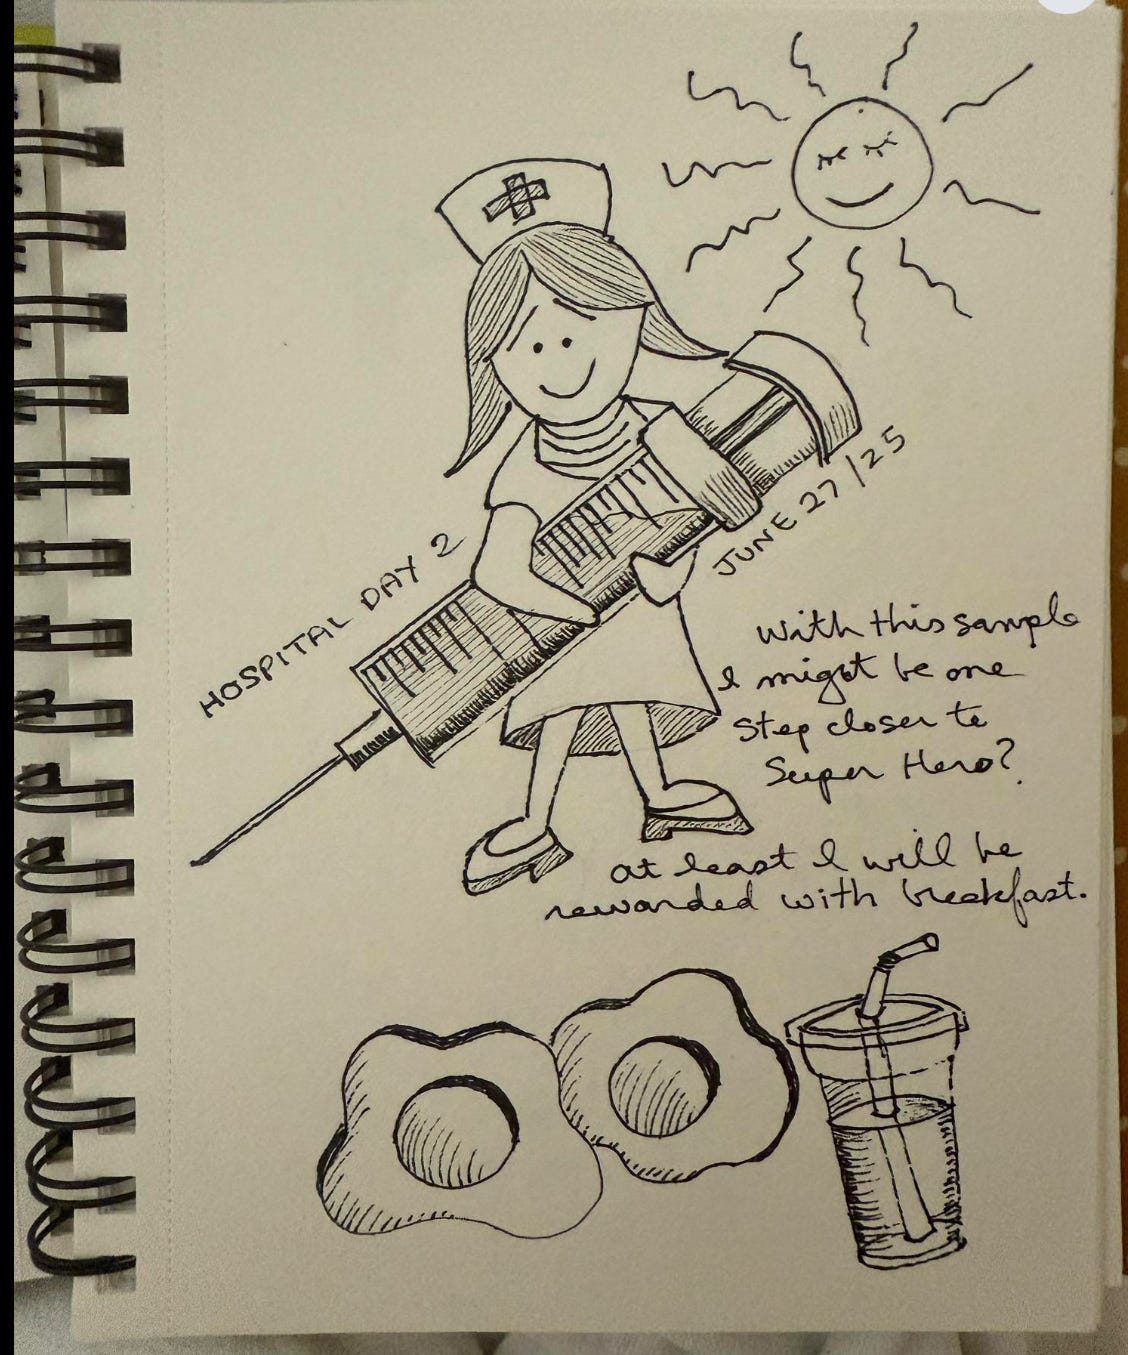 HOSPITAL DAY 2
JUNE 27/25
With this sample
I might be one
step closer to
Super Hero?
at least I will be
rewarded with breakfast.